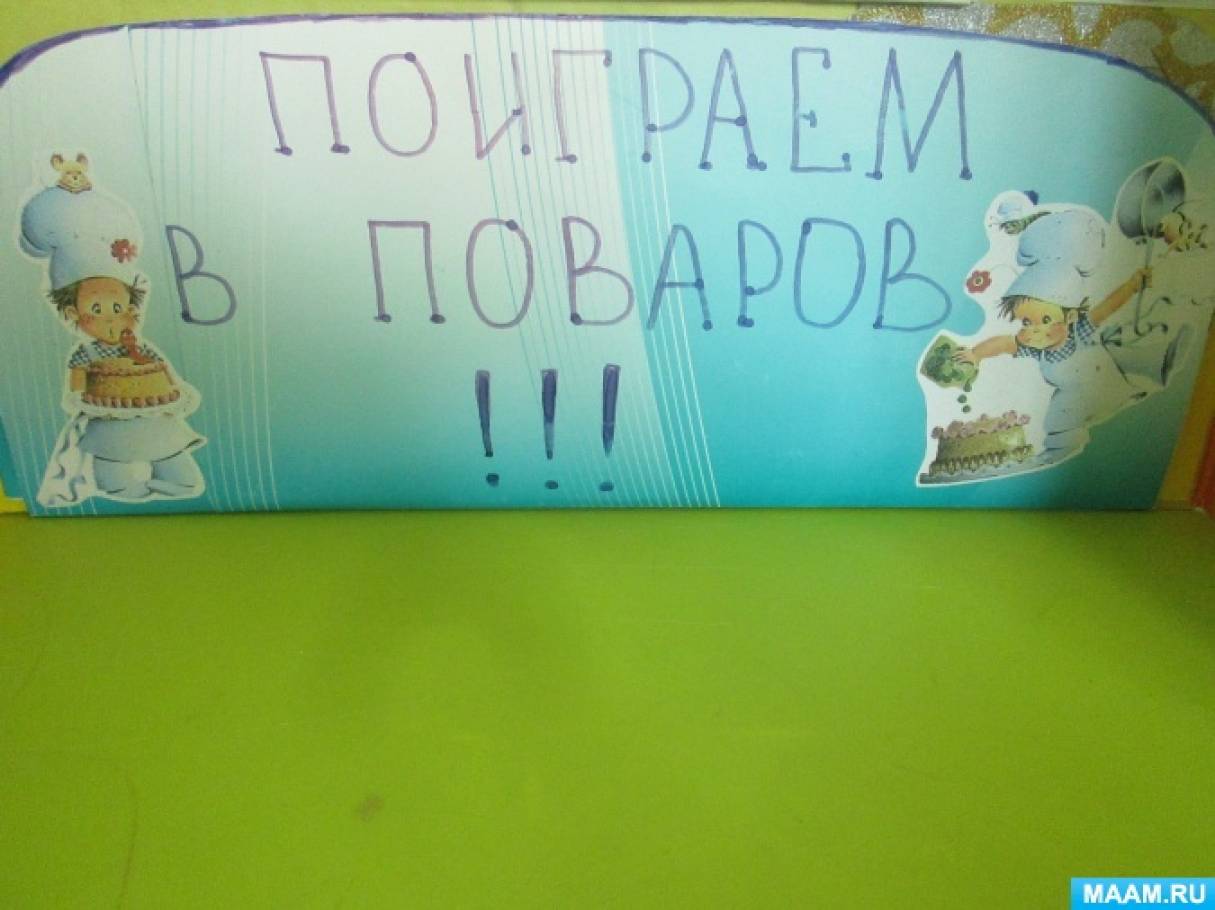 ПОИГРАЕМ
В ПОВАРОВ
!!!
MAAM.RU